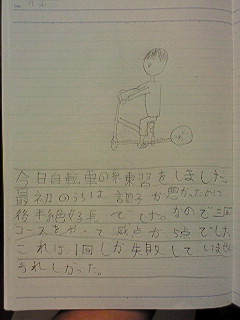 今日自転車の練習をしました。
最初のうちは調子が悪かったけど
後半絶好調でした。なので三回
コースをやって減点が5点でした
これは1回しか失敗していません
うれしかった。